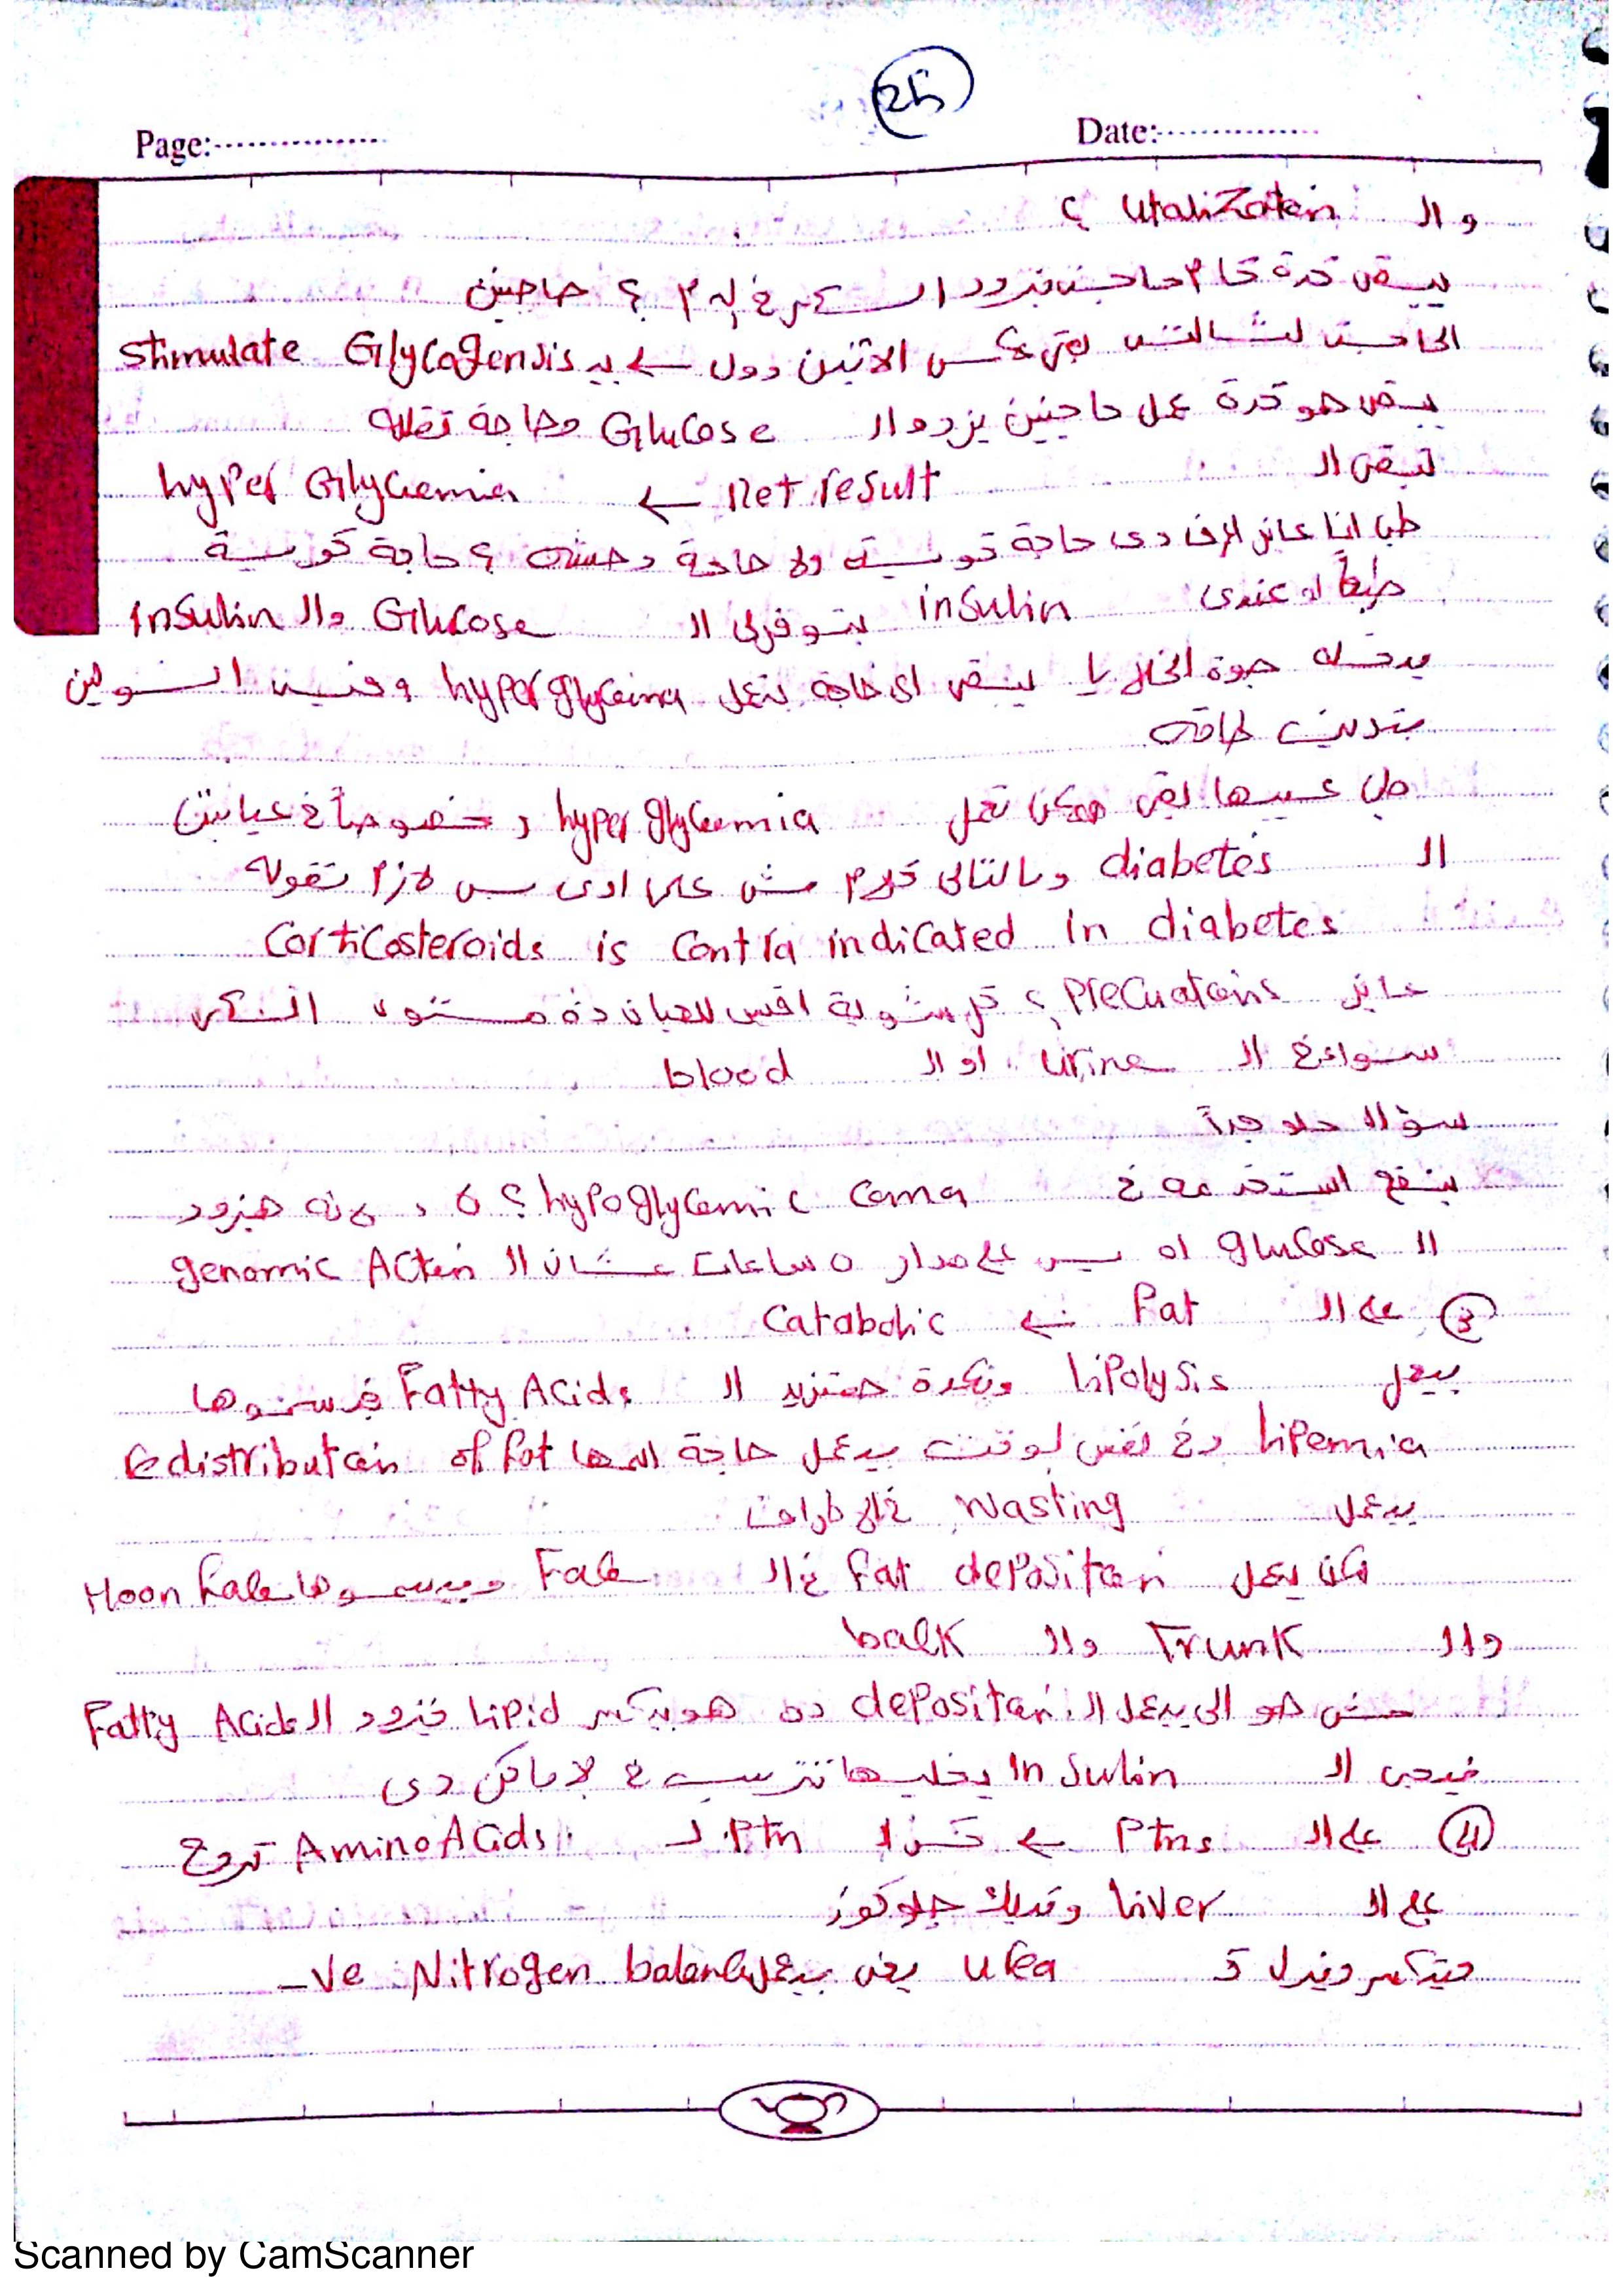 25
Page:
Date:
وال utalization ؟
يبقى كدة كام حاجة بتزود السكر في الدم ؟ حاجتين
الحاجة التالتة بقى عكس الاتنين دول ← بيـ stimulate Glycogensis
يبقى هو كدة عمل حاجتين يزودوا ال Glucose وحاجة تقلله
تبقى ال net result ← hyper Glycemia
طب انا عايز اعرف دى حاجة كويسة ولا حاجة وحشة ؟ حاجة كويسة
طبعاً لو عندى insulin بتوفرلى ال Glucose وال insulin
يدخله جوة الخلايا يبقى اى حاجة بتعمل hyperglycemia وفيه انسولين
بتديك طاقة
طب عيبها بقى ممكن تعمل hyper glycemia وخصوصاً في عيانين
ال diabetes وبالتالى كلام مش عايز ادى بس لازم تقوله
Corticosteroids is Contra indicated in diabetes
عايز Precuations ؟ كل شوية اقيس للعيان دة مستوى السكر
سواء في ال urine او ال blood
سؤال حلو جداً
ينفع استخدمه في hypoglycemic Coma ؟ لا , لانه هيزود
ال glucose اه بس على مدار 5 ساعات عشان ال genomic Action
③ على ال Fat ← Catabolic
بيعمل lipolysis وبكدة هتزيد ال Fatty Acids فبيسموها
lipemia وفي نفس الوقت بيعمل حاجة اسمها redistribution of fat
بيعمل wasting في الاطراف
لكن يعمل fat deposition في ال Face وبيسموها Moon face
وال Trunk وال back
مش هو الى بيعمل ال deposition ده هو بيكسر lipid فيزود ال Fatty Acids
فييجى ال Insulin يخليها تترسب في الاماكن دى
④ على ال Ptns ← تكسر ال Ptn لـ AminoAcids تروح
على ال liver وتديك جلوكوز
هيتكسر وينزل كـ urea يعنى بيعمل -ve Nitrogen balance
Scanned by CamScanner